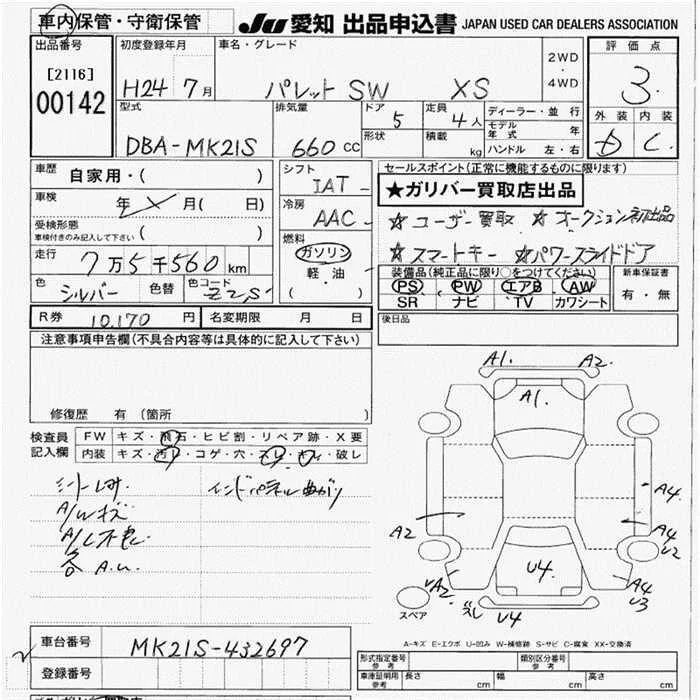 車内保管・守衛保管 JU 愛知 出品申込書 JAPAN USED CAR DEALERS ASSOCIATION
出品番号 初度登録年月 車名・グレード 評価点
[2116] 2WD
00142 H24 7月 パレット SW XS 4WD 3
型式 排気量 ドア 5 定員 4人 ディーラー・並行 外装 内装
DBA-MK21S 660cc 形状 積載 kg モデル年式 年 C
ハンドル 左・右
車歴 自家用・( ) シフト IAT セールスポイント(正常に機能するものに限ります)
車検 年 月( 日) 冷房 AAC ★ガリバー買取店出品
受検形態 ☆ユーザー買取 ☆オークション初出品
車検付きのみ記入して下さい ( ) 燃料 ☆スマートキー ☆パワースライドドア
走行 7万5千560km ガソリン 装備品(純正品に限り○をつけてください) 新車保証書
色 シルバー 色替 色コード Z2S 軽油 PS PW エアB AW 有・無
( ) SR ナビ TV カワシート
R券 10,170円 名変期限 月 日 後日品
注意事項申告欄(不具合内容等は具体的に記入して下さい)
A1. A2.
A1.
修復歴 有(箇所
検査員 FW キズ・飛石・ヒビ割・リペア跡・X要
記入欄 内装 キズ・汚レ・コゲ・穴・スレ・・破し
A/W キズ
インパネ
A4
A2 A4
U2
U4.
A2. A4
U3
スペア U4
A-キズ E-エクボ U-凹み W-補修跡 S-サビ C-腐食 XX-交換済
車台番号 MK21S-432697
登録番号
形式指定番号 参考 類別区分番号 参考
車庫証明用 参考 長さ cm 幅 cm 高さ cm